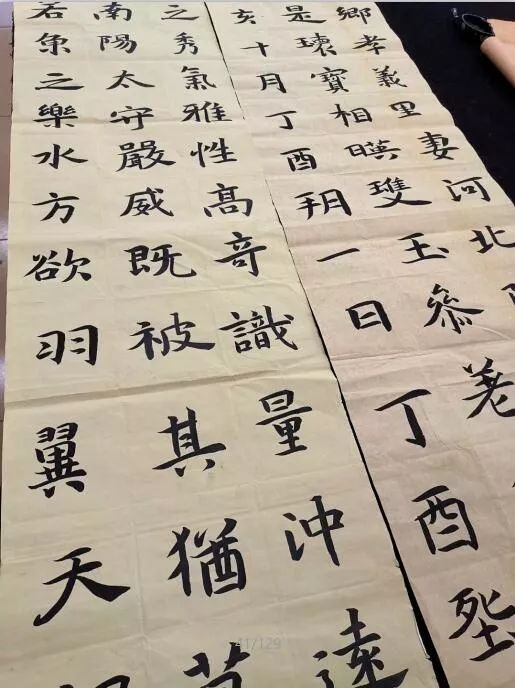 鄉孝義里妻河北
是瓌寶相暎雙玉參差
亥十月丁酉朔一日丁酉
之秀氣雅性高奇識量沖遠
南陽太守嚴威既被其猶草
若魚之樂水方欲羽翼天